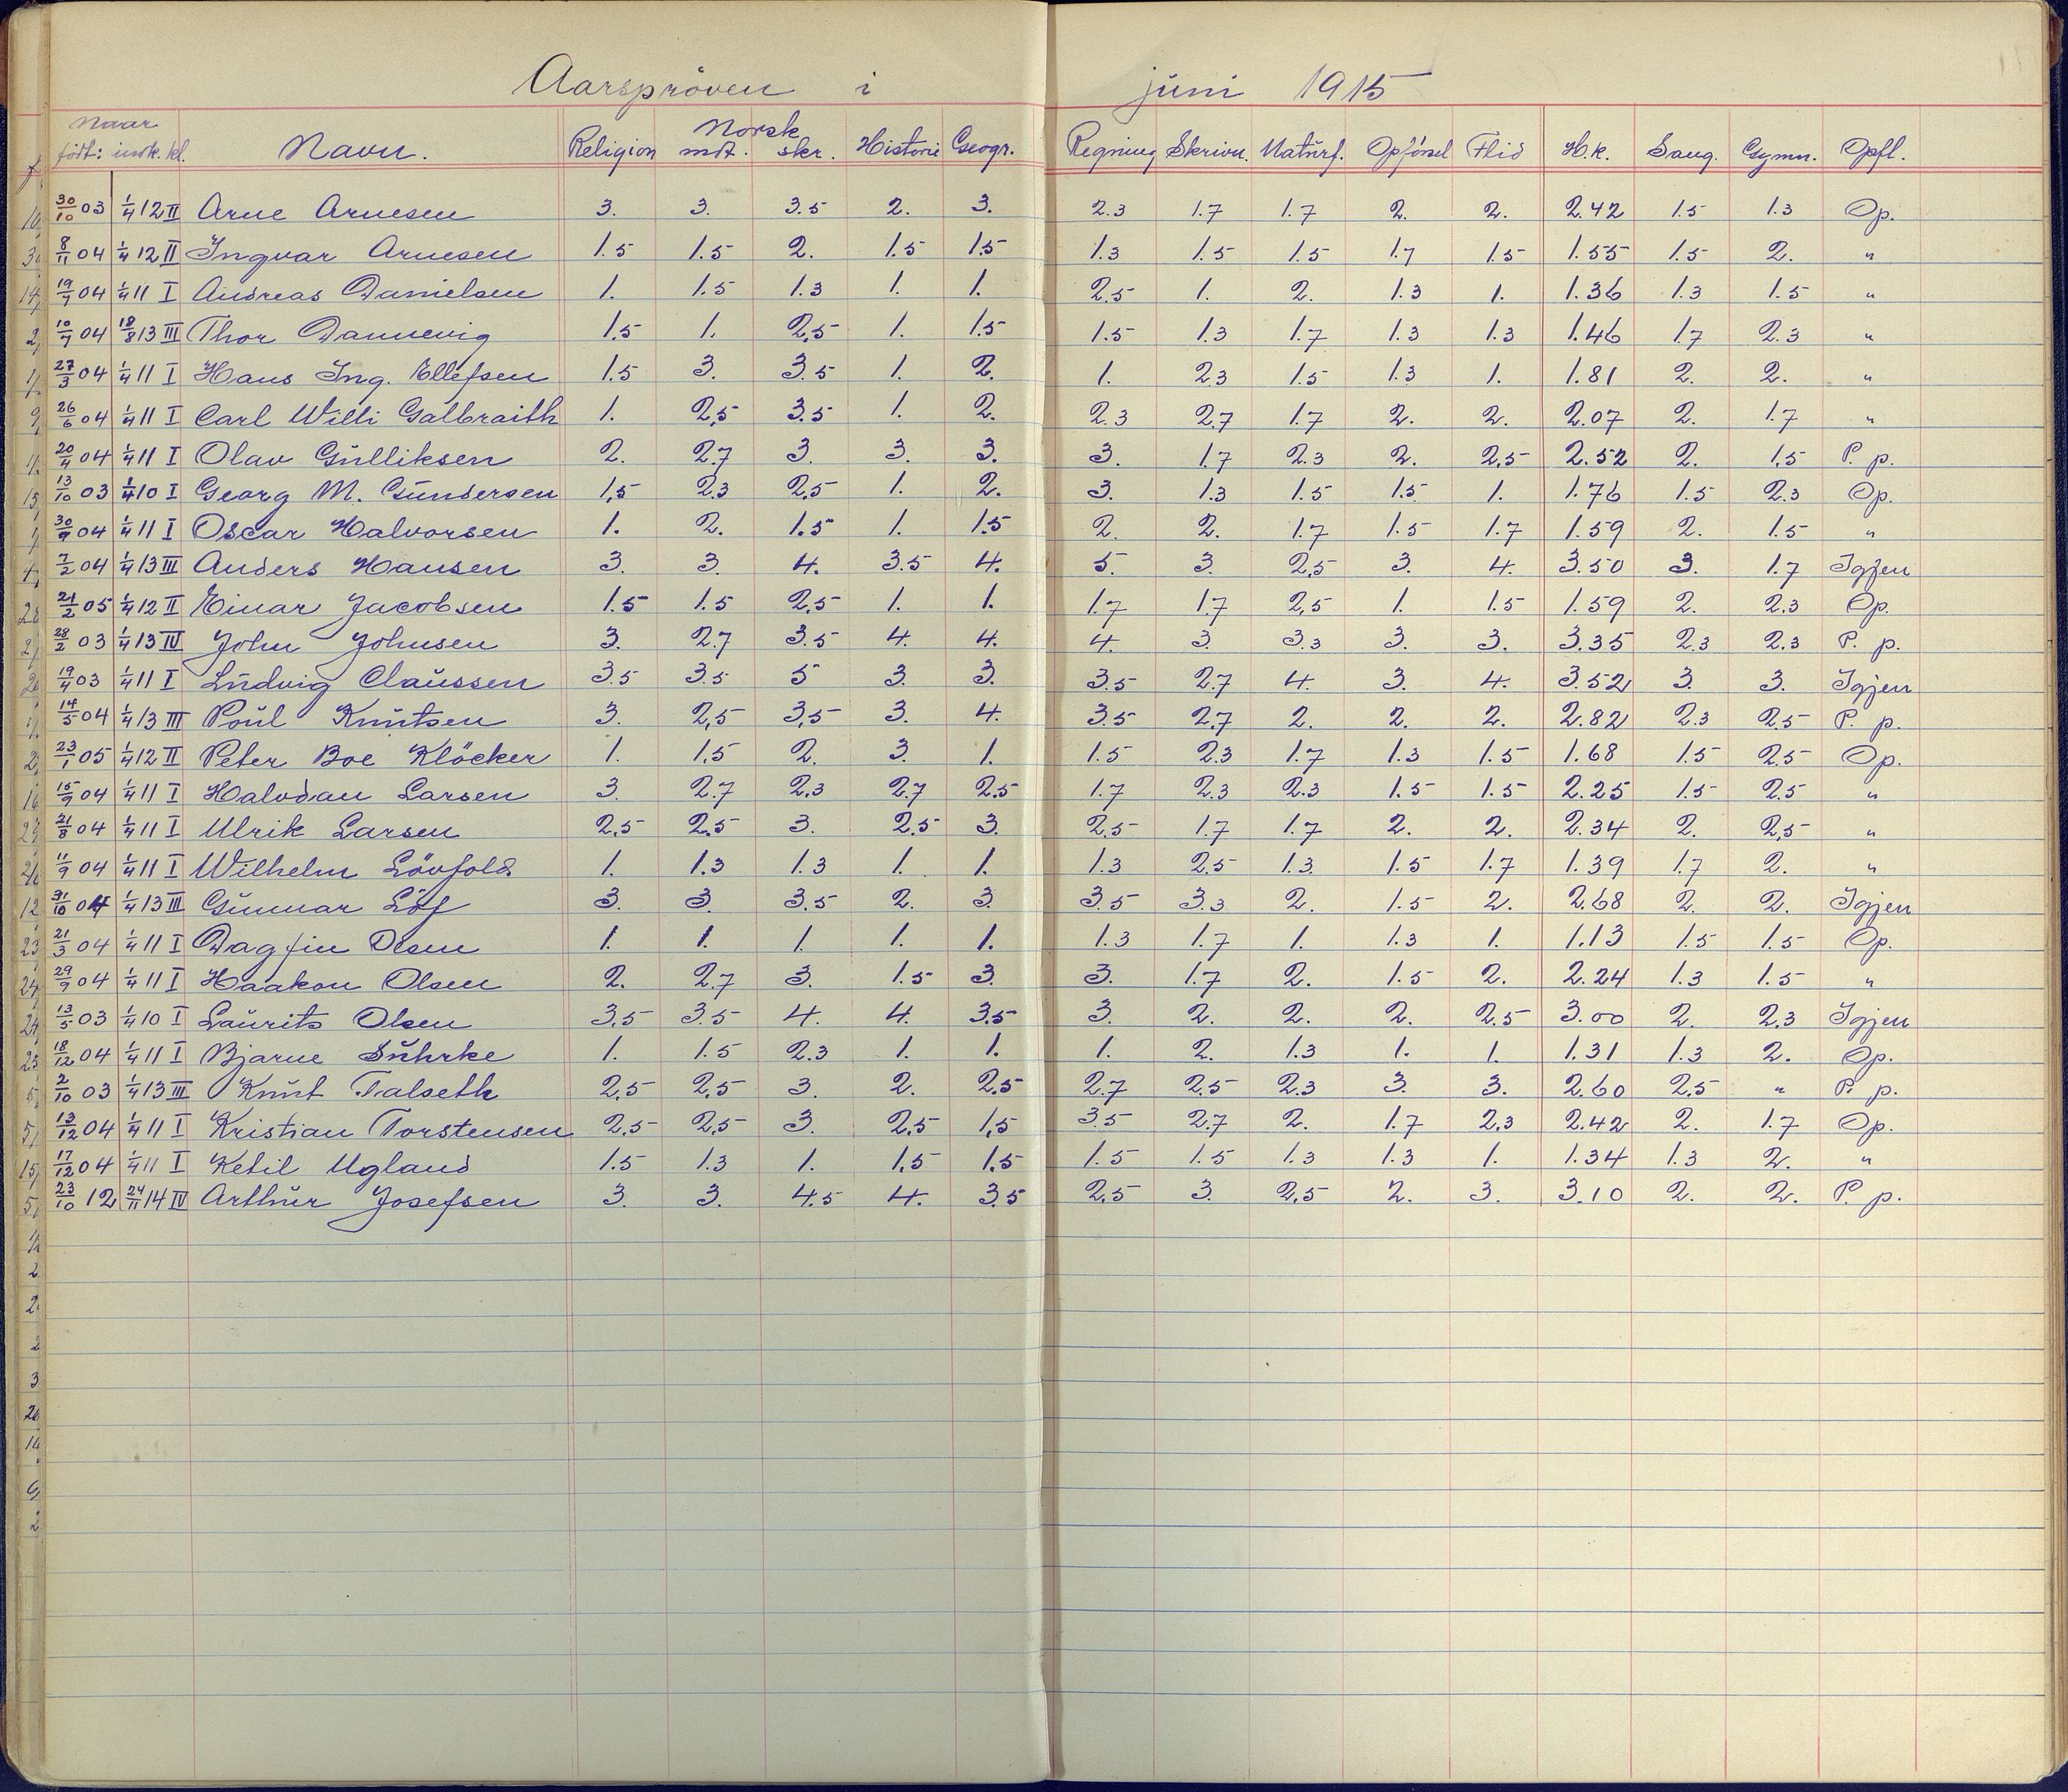 Aarsprøven i juni 1915
Naar
født: indk. kl. Navn. Religion Norsk mdt. skr. Historie Geogr. Regning Skrivn. Naturf. Opførsel Flid H.k. Sang. Gymn. Opfl.
30/10 03 1/4 12 II Arne Arnesen 3. 3. 3.5 2. 3. 2.3 1.7 1.7 2. 2. 2.42 1.5 1.3 Op.
8/11 04 1/4 12 II Ingvar Arnesen 1.5 1.5 2. 1.5 1.5 1.3 1.5 1.5 1.7 1.5 1.55 1.5 2. "
19/7 04 1/4 11 I Andreas Danielsen 1. 1.5 1.3 1. 1. 2.5 1. 2. 1.3 1. 1.36 1.3 1.5 "
10/7 04 18/8 13 III Thor Dannevig 1.5 1. 2.5 1. 1.5 1.5 1.3 1.7 1.3 1.3 1.46 1.7 2.3 "
27/3 04 1/4 11 I Hans Ing. Ellefsen 1.5 3. 3.5 1. 2. 1. 2.3 1.5 1.3 1. 1.81 2. 2. "
26/6 04 1/4 11 I Carl Willi Galbraith 1. 2.5 3.5 1. 2. 2.3 2.7 1.7 2. 2. 2.07 2. 1.7 "
20/4 04 1/4 11 I Olav Gulliksen 2. 2.7 3. 3. 3. 3. 1.7 2.3 2. 2.5 2.52 2. 1.5 P. p.
13/10 03 1/4 10 I Georg M. Gundersen 1.5 2.3 2.5 1. 2. 3. 1.3 1.5 1.5 1. 1.76 1.5 2.3 Op.
30/9 04 1/4 11 I Oscar Halvorsen 1. 2. 1.5 1. 1.5 2. 2. 1.7 1.5 1.7 1.59 2. 1.5 "
7/2 04 1/4 13 III Anders Hansen 3. 3. 4. 3.5 4. 5. 3. 2.5 3. 4. 3.50 3. 1.7 Igjen
21/2 05 1/4 12 II Einar Jacobsen 1.5 1.5 2.5 1. 1. 1.7 1.7 2.5 1. 1.5 1.59 2. 2.3 Op.
28/2 03 1/4 13 IV John Johnsen 3. 2.7 3.5 4. 4. 4. 3. 3.3 3. 3. 3.35 2.3 2.3 P. p.
19/4 03 1/4 11 I Ludvig Claussen 3.5 3.5 5 3. 3. 3.5 2.7 4. 3. 4. 3.52 3. 3. Igjen
14/5 04 1/4 13 III Poul Knutsen 3. 2.5 3.5 3. 4. 3.5 2.7 2. 2. 2. 2.82 2.3 2.5 P. p.
23/1 05 1/4 12 II Peter Boe Klöcker 1. 1.5 2. 3. 1. 1.5 2.3 1.7 1.3 1.5 1.68 1.5 2.5 Op.
15/9 04 1/4 11 I Halvdan Larsen 3. 2.7 2.3 2.7 2.5 1.7 2.3 2.3 1.5 1.5 2.25 1.5 2.5 "
21/8 04 1/4 11 I Ulrik Larsen 2.5 2.5 3. 2.5 3. 2.5 1.7 1.7 2. 2. 2.34 2. 2.5 "
11/9 04 1/4 11 I Wilhelm Lövfold 1. 1.3 1.3 1. 1. 1.3 2.5 1.3. 1.5 1.7 1.39 1.7 2. "
31/10 04 1/4 13 III Gunnar Löf 3. 3. 3.5 2. 3. 3.5 3.3 2. 1.5 2. 2.68 2. 2. Igjen
21/3 04 1/4 11 I Dagfin Olsen 1. 1. 1. 1. 1. 1.3 1.7 1. 1.3 1. 1.13 1.5 1.5 Op.
29/9 04 1/4 11 I Haakon Olsen 2. 2.7 3. 1.5 3. 3. 1.7 2. 1.5 2. 2.24 1.3 1.5 "
13/5 03 1/4 10 I Laurits Olsen 3.5 3.5 4. 4. 3.5 3. 2. 2. 2. 2.5 3.00 2. 2.3 Igjen
18/12 04 1/4 11 I Bjarne Suhrke 1. 1.5 2.3 1. 1. 1. 2. 1.3 1. 1. 1.31 1.3 2. Op.
2/10 03 1/4 13 III Knut Talseth 2.5 2.5 3. 2. 2.5 2.7 2.5 2.3 3. 3. 2.60 2.5 " P. p.
13/12 04 1/4 11 I Kristian Torstensen 2.5 2.5 3. 2.5 1.5 3.5 2.7 2. 1.7 2.3 2.42 2. 1.7 Op.
17/12 04 1/4 11 I Ketil Ugland 1.5 1.3 1. 1.5 1.5 1.5 1.5 1.3 1.3 1. 1.34 1.3 2. "
23/10 12 24/11 14 IV Arthur Josefsen 3. 3. 4.5 4. 3.5 2.5 3. 2.5 2. 3. 3.10 2. 2. P. p.